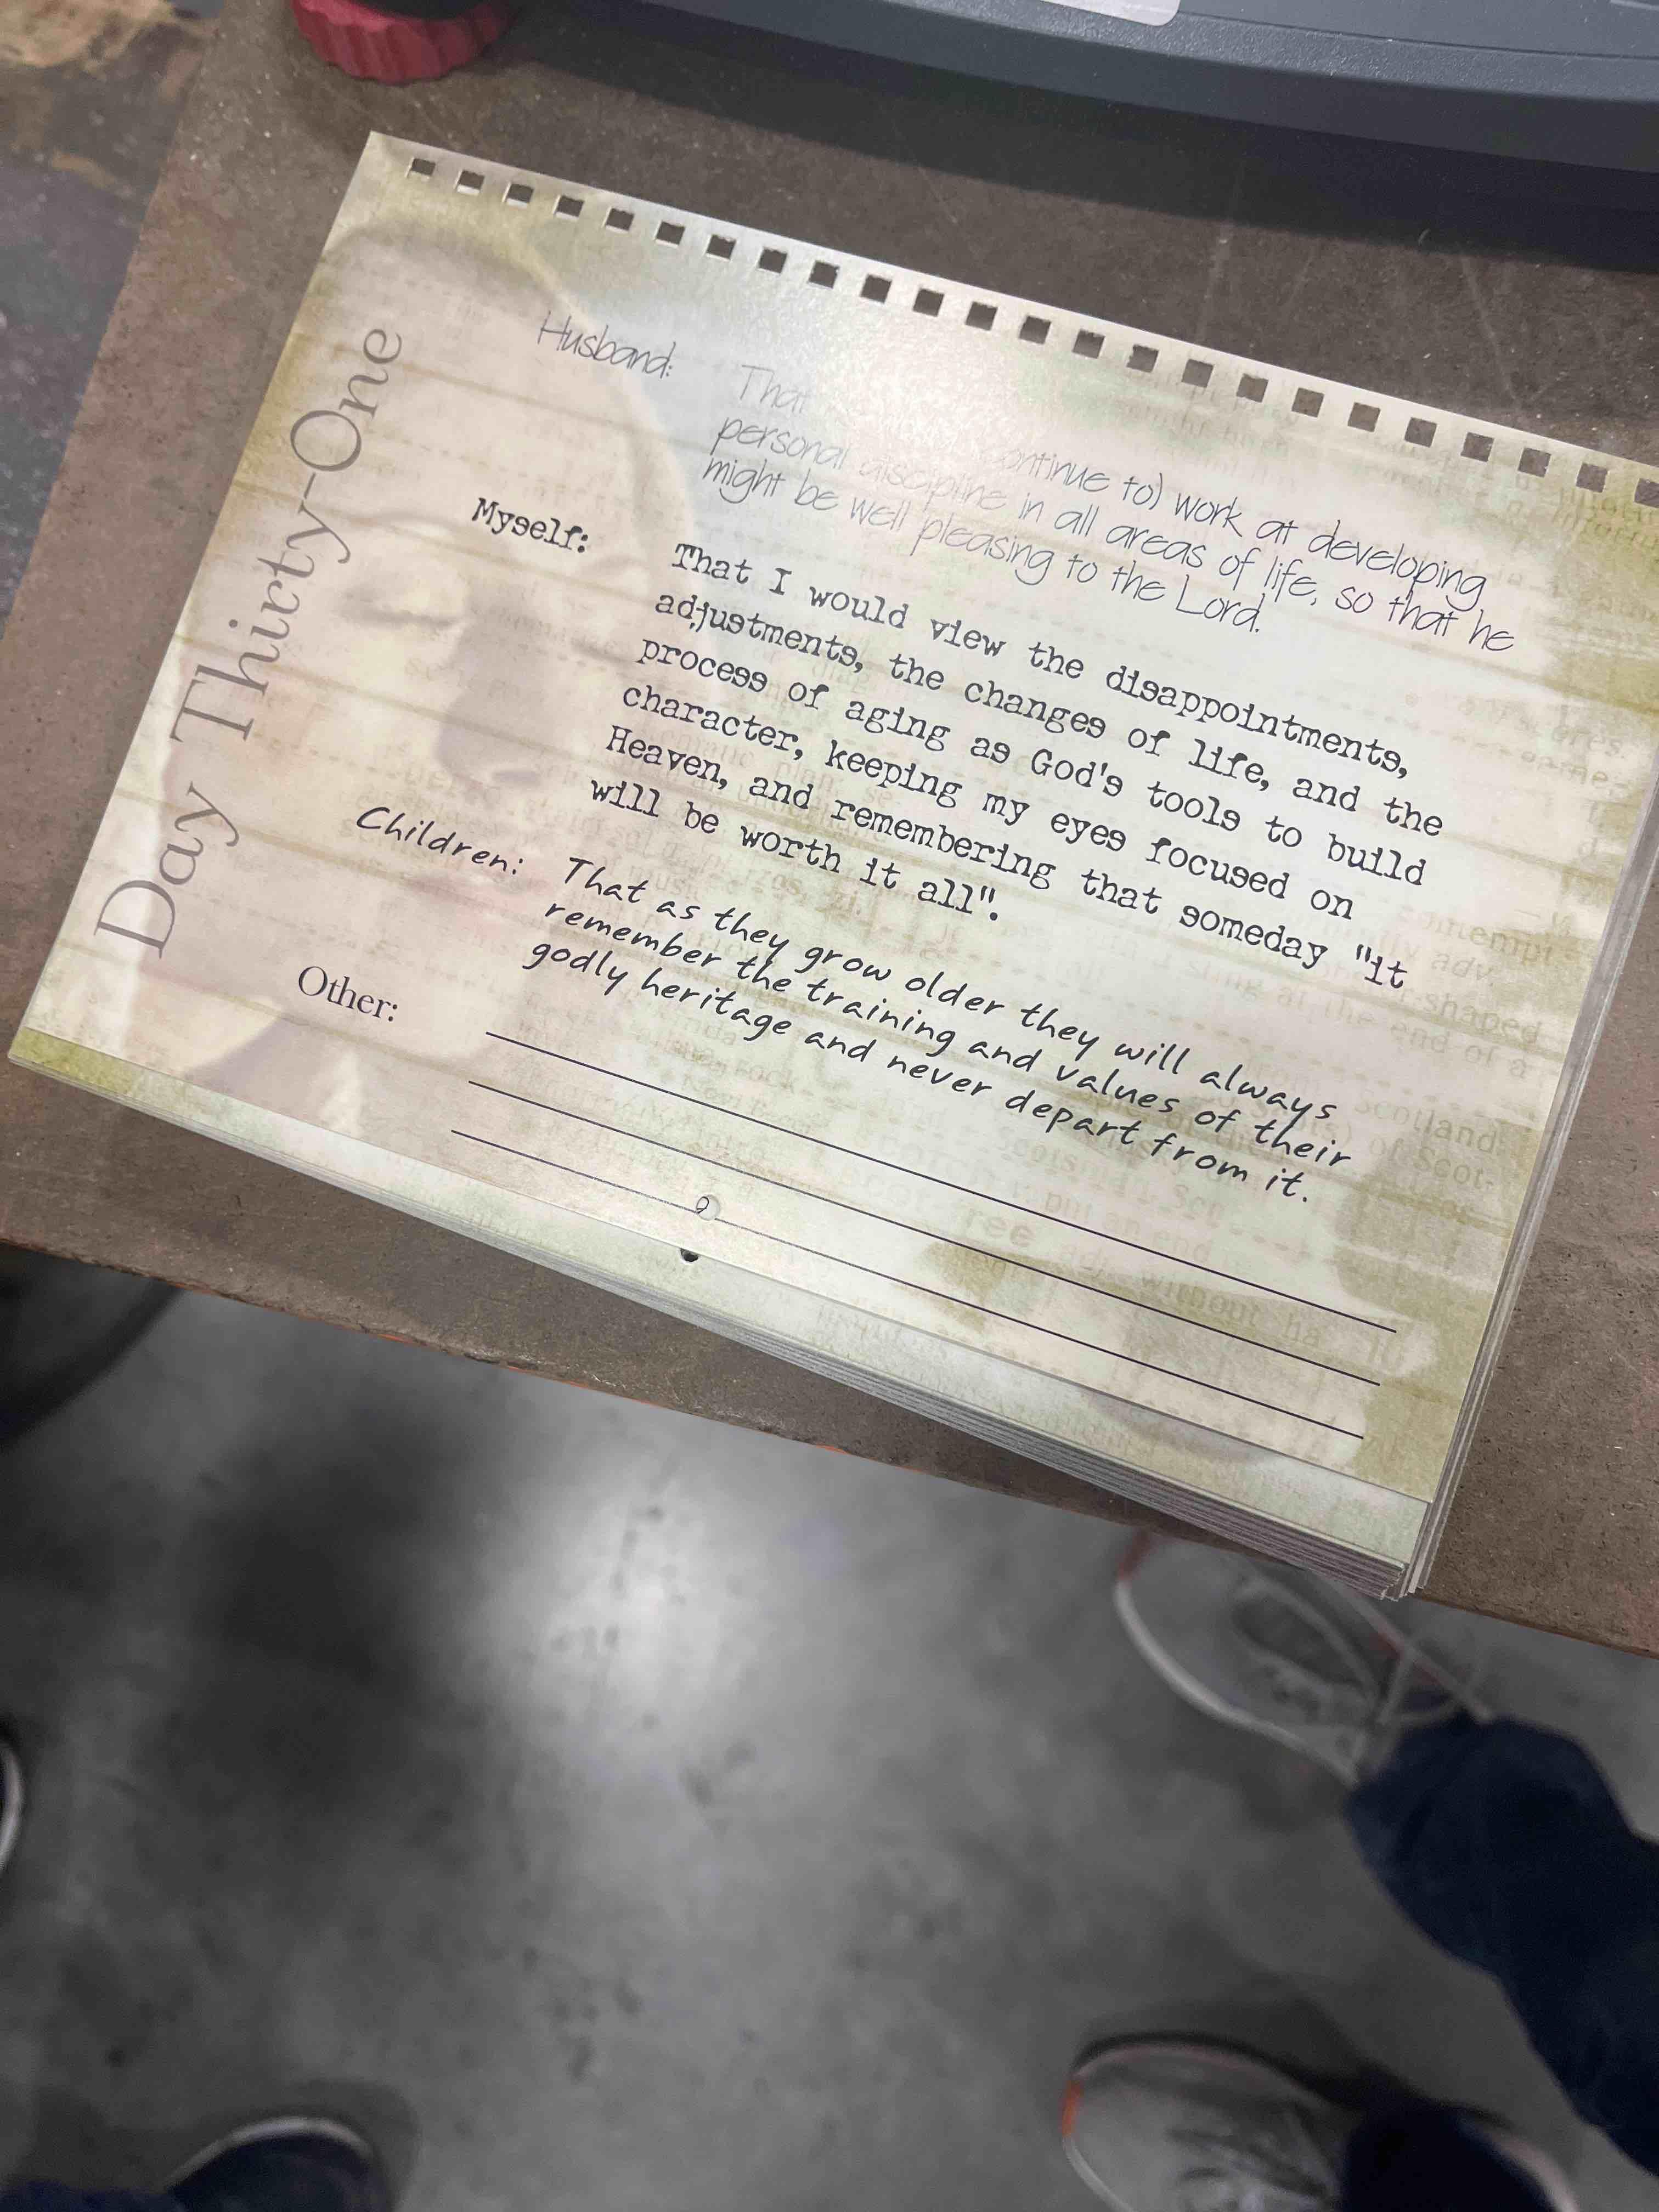 Day Thirty-One
Husband: That continue to) work at developing
personal discipline in all areas of life, so that he
might be well pleasing to the Lord.
Myself: That I would view the disappointments,
adjustments, the changes of life, and the
process of aging as God's tools to build
character, keeping my eyes focused on
Heaven, and remembering that someday "it
will be worth it all".
Children: That as they grow older they will always
remember the training and values of their
godly heritage and never depart from it.
Other: